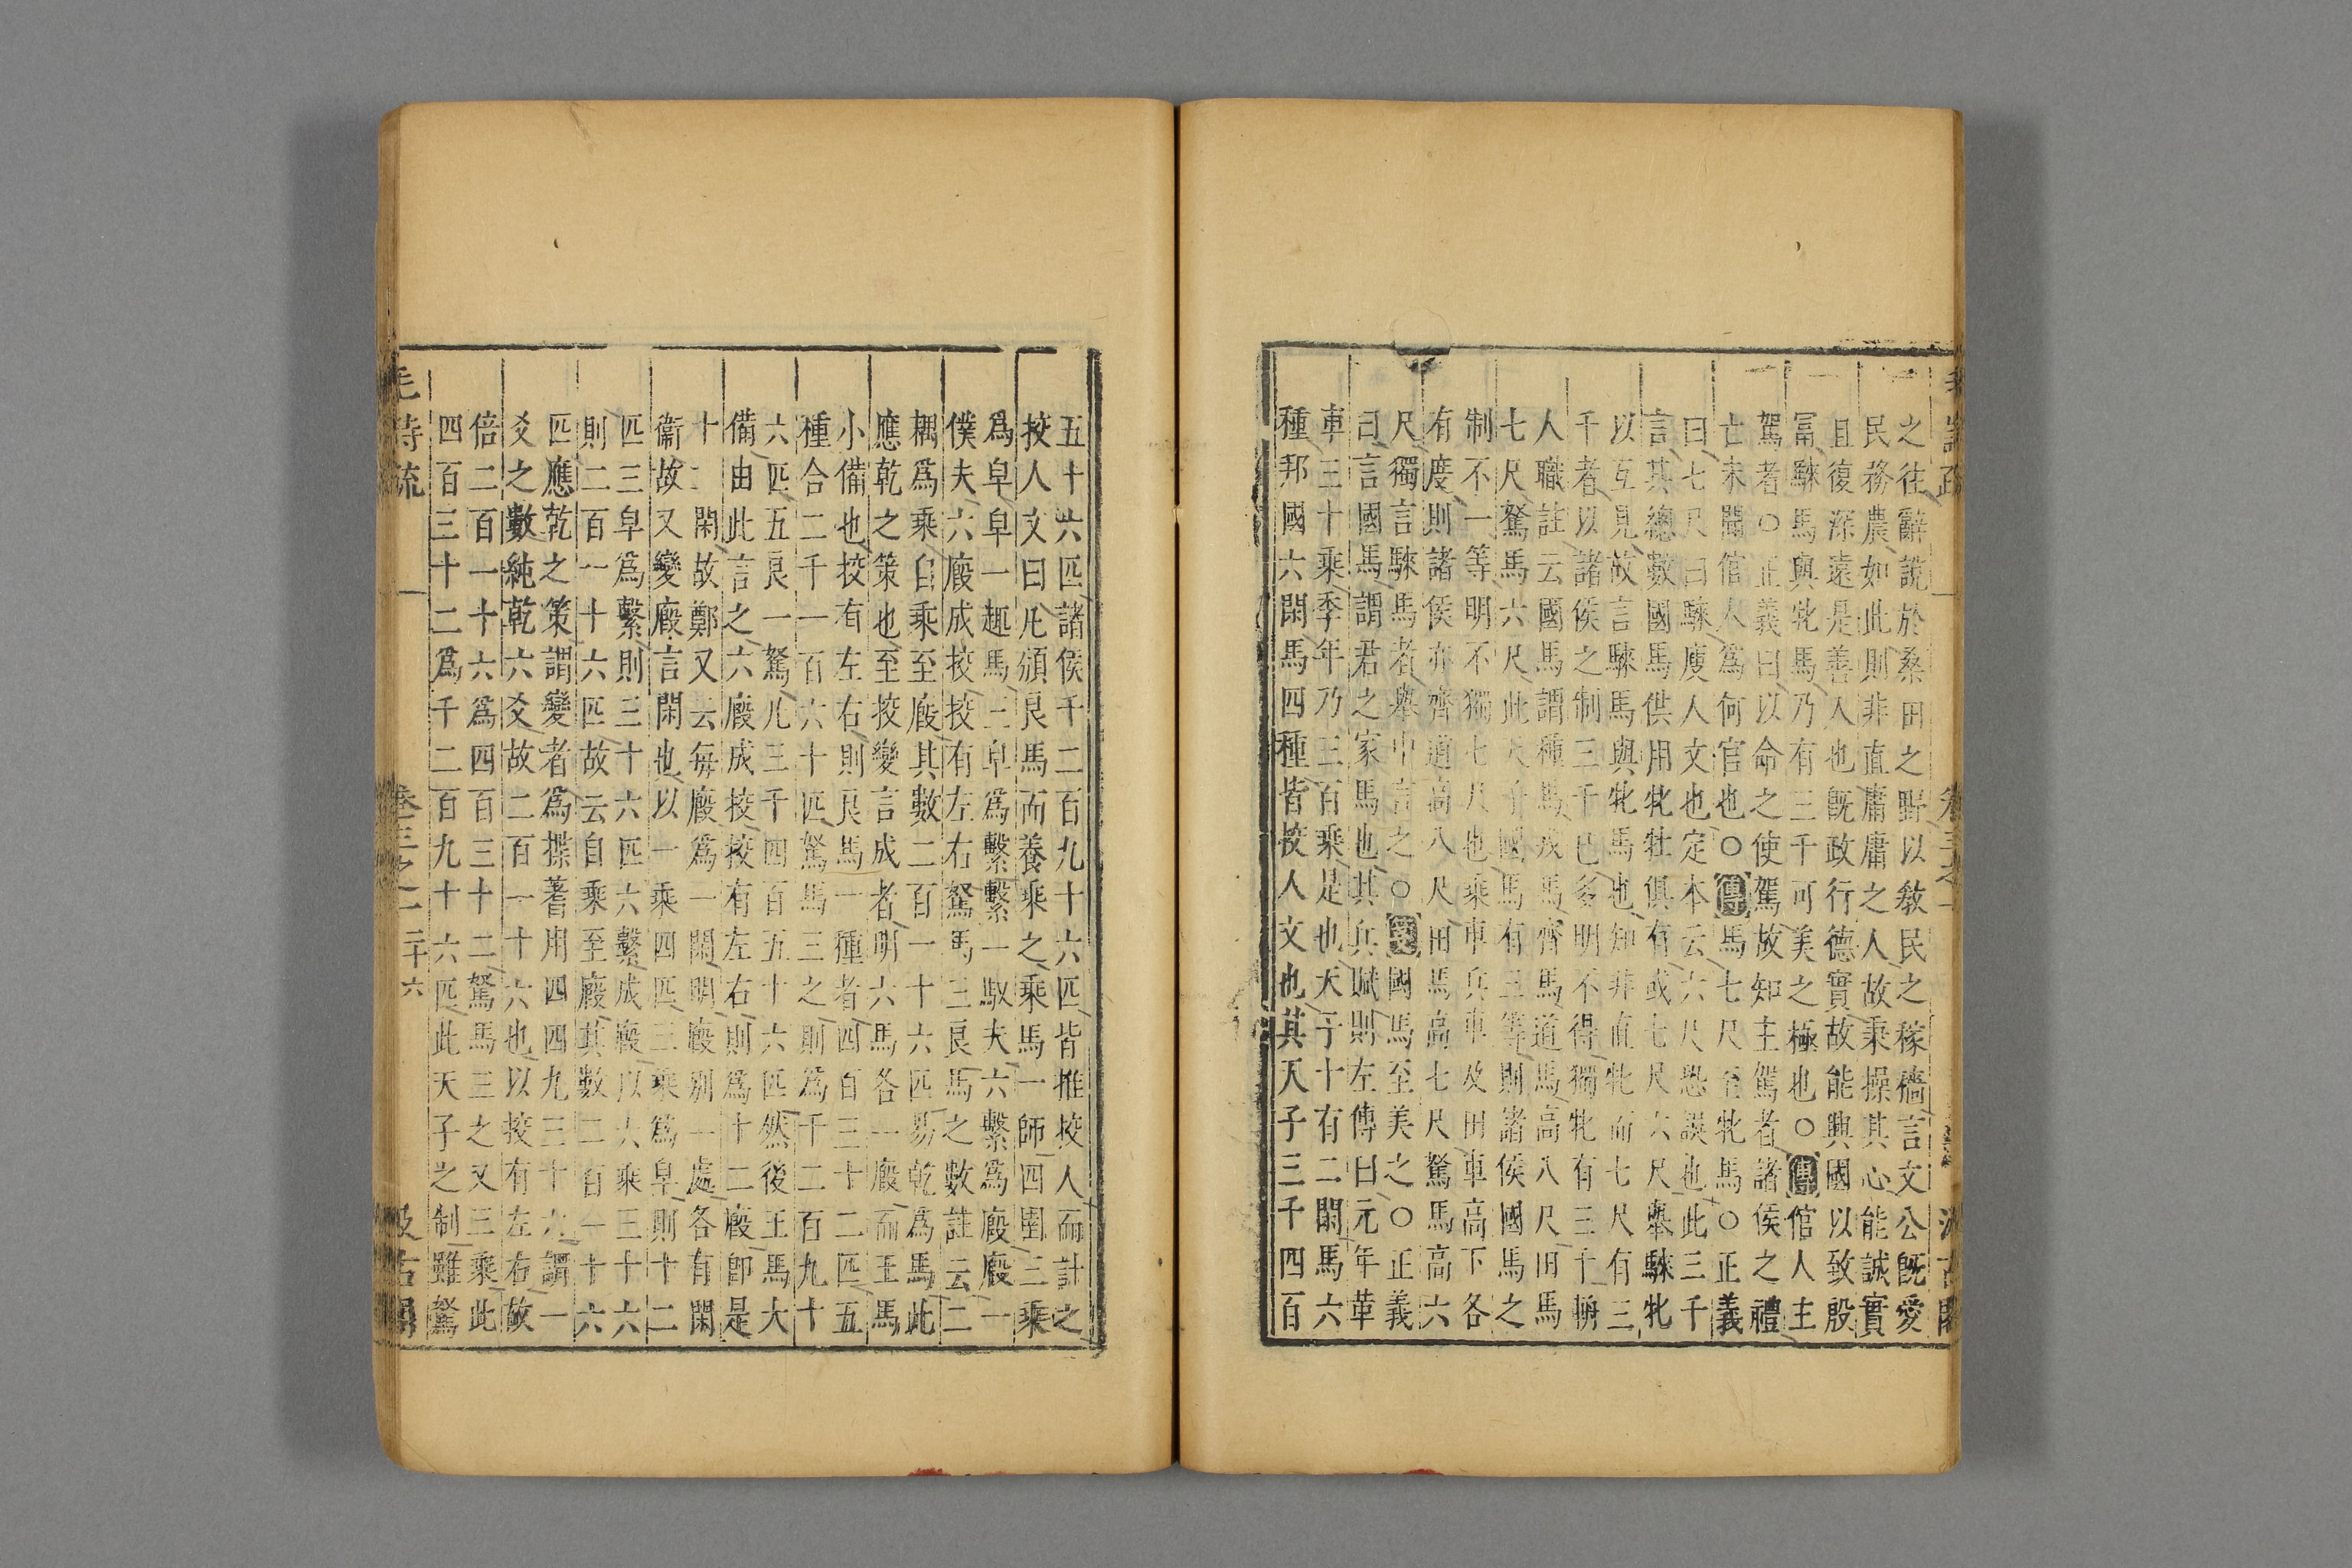 之往辭說於桑田之野以敎民之稼穡言文公旣愛
民務農如此則非直庸庸之人故秉操其心能誠實
且復深遠是善人也旣政行德實故能興國以致殷
富騋馬與牝馬乃有三千可美之極也○箋倌人主
駕者○正義曰以命之使駕故知主駕者諸侯之禮
亡未聞倌人爲何官也○傳馬七尺至牝馬○正義
曰七尺曰騋廋人文也定本云六尺恐誤也此三千
言其總數國馬供用牝牡俱有或七尺六尺舉騋牝
以互見故言騋馬與牝馬也知非直牝而七尺有三
千者以諸侯之制三千已多明不得獨牝有三千輈
人職註云國馬謂種馬戎馬齊馬道馬高八尺田馬
七尺駑馬六尺此天子國馬有三等則諸侯國馬之
制不一等明不獨七尺也乘車兵車及田車高下各
有度則諸侯亦齊道高八尺田馬高七尺駑馬高六
尺獨言騋馬者舉中言之○箋國馬至美之○正義
曰言國馬謂君之家馬也其兵賦則左傳曰元年革
車三十乘季年乃三百乘是也天子十有二閑馬六
種邦國六閑馬四種皆挍人文也其天子三千四百
五十六匹諸侯千二百九十六匹皆推挍人而計之
挍人文曰凡頒良馬而養乘之乘馬一師四圉三乘
爲皁皁一趣馬三皁爲繫繫一馭夫六繫爲廄廄一
僕夫六廄成挍挍有左右駑馬三良馬之數註云二
耦爲乘自乘至廄其數二百一十六匹易乾爲馬此
應乾之策也至挍變言成者明六馬各一廄而王馬
小備也挍有左右則良馬一種者四百三十二匹五
種合二千一百六十匹駑馬三之則爲千二百九十
六匹五良一駑凡三千四百五十六匹然後王馬大
備由此言之六廄成挍挍有左右則爲十二廄卽是
十二閑故鄭又云每廄爲一閑明廄別一處各有閑
衞故又變廄言閑也以一乘四匹三乘爲皁則十二
匹三皁爲繫則三十六匹六繫成廄以六乘三十六
則二百一十六匹故云自乘至廄其數二百一十六
匹應乾之策謂變者爲揲蓍用四四九三十六謂一
爻之數純乾六爻故二百一十六也以挍有左右故
倍二百一十六爲四百三十二駑馬三之又三乘此
四百三十二爲千二百九十六匹此天子之制雖駑
毛詩疏 卷三之一 二十六 汲古閣